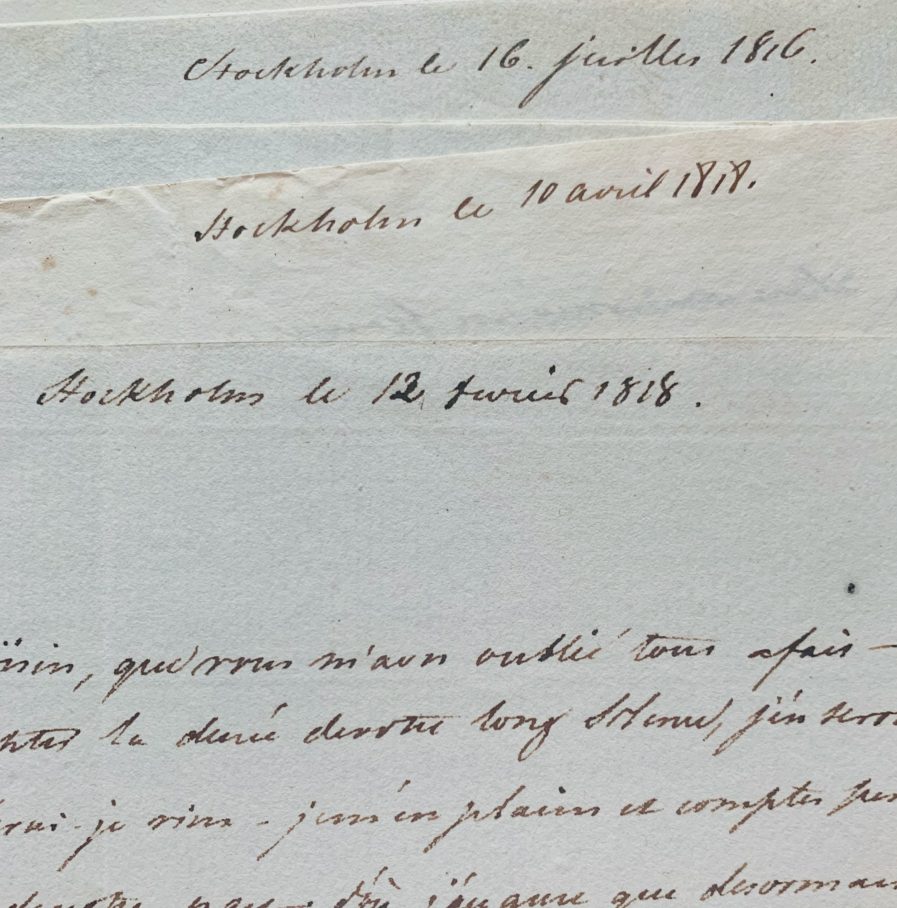 Stockholm le 16. juillet 1816.
Stockholm le 10 avril 1818.
Stockholm le 12 fevrier 1818.
que vous m'avés oublié tous afait —
la dureé devotre long Silence, j'en serois
-je rien - jem'en plains et comptes
devotre que desormais